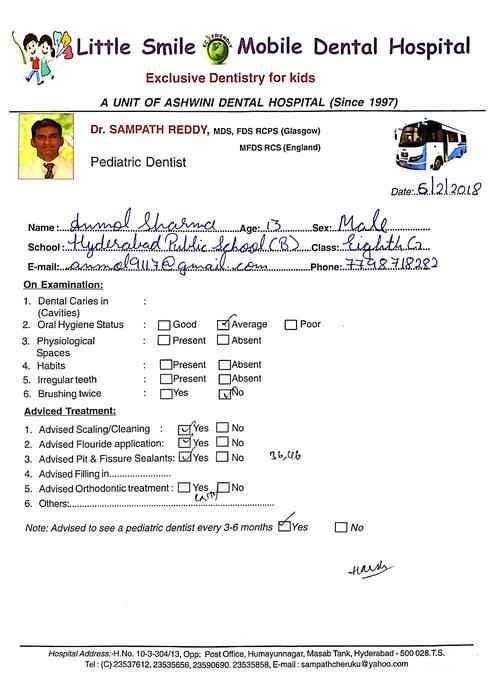 Little Smile ECO FRIENDLY Mobile Dental Hospital
Exclusive Dentistry for kids
A UNIT OF ASHWINI DENTAL HOSPITAL (Since 1997)
Dr. SAMPATH REDDY, MDS, FDS RCPS (Glasgow)
MFDS RCS (England)
Pediatric Dentist
Date: 6/2/2018
Name: Anmol Sharma Age: 13 Sex: Male
School: Hyderabad Public School (B) Class: Eighth G
E-mail: anmol9117@gmail.com Phone: 7798718282
On Examination:
1. Dental Caries in :
(Cavities)
2. Oral Hygiene Status : Good Average Poor
3. Physiological : Present Absent
Spaces
4. Habits : Present Absent
5. Irregular teeth : Present Absent
6. Brushing twice : Yes No
Adviced Treatment:
1. Advised Scaling/Cleaning : Yes No
2. Advised Flouride application: Yes No
3. Advised Pit & Fissure Sealants: Yes No 36,46
4. Advised Filling in.....................
5. Advised Orthodontic treatment : Yes No
6. Others:.....................
Note: Advised to see a pediatric dentist every 3-6 months Yes No
Hospital Address:-H.No. 10-3-304/13, Opp: Post Office, Humayunnagar, Masab Tank, Hyderabad - 500 028.T.S.
Tel : (C) 23537612, 23535656, 23590690. 23535858, E-mail : sampathcheruku@yahoo.com